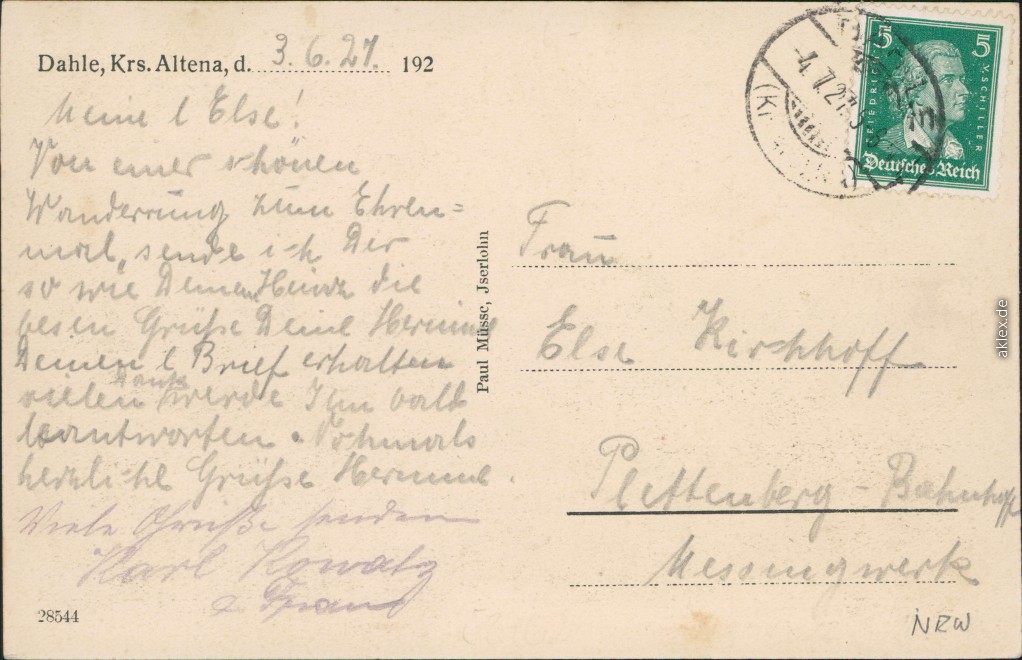 Dahle, Krs. Altena, d. 3.6.27. 192
Meine l Else!
Von einer schönen
Wanderrung zum Ehren=
mal, sende ich Dir
so wie Deinen Heinz die
besen Grüße Deine Hermine
Deinen l Brief erhalten
vielen Dank werde Ihn bald
beantworten. Nochmals
herzliche Grüße Hermine.
Viele Grüße senden
Karl Kowatz
u Frau
28544
Paul Müsse, Jserlohn
-4.7.27
5 5
FRIEDRICH V. SCHILLER
Deutsches Reich
Frau
Else Kirchhoff
Plettenberg - Bahnhof
Messingwerk
NRW
aklex.de